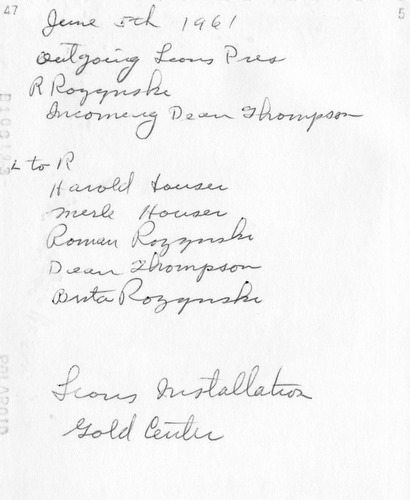 47
5
June 5th 1961
Outgoing Lions Pres
R Rozynski
Incomeing Dean Thompson
L to R
Harold Houser
Merle Houser
Roman Rozynski
Dean Thompson
Rozynski
Lions Installation
Gold Center
POLAROID